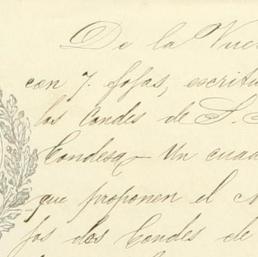 De la Vue
con 7. fojas, escritu
los Condes de S.
Condesa - Un cua
que proponen el
jos dos Condes de